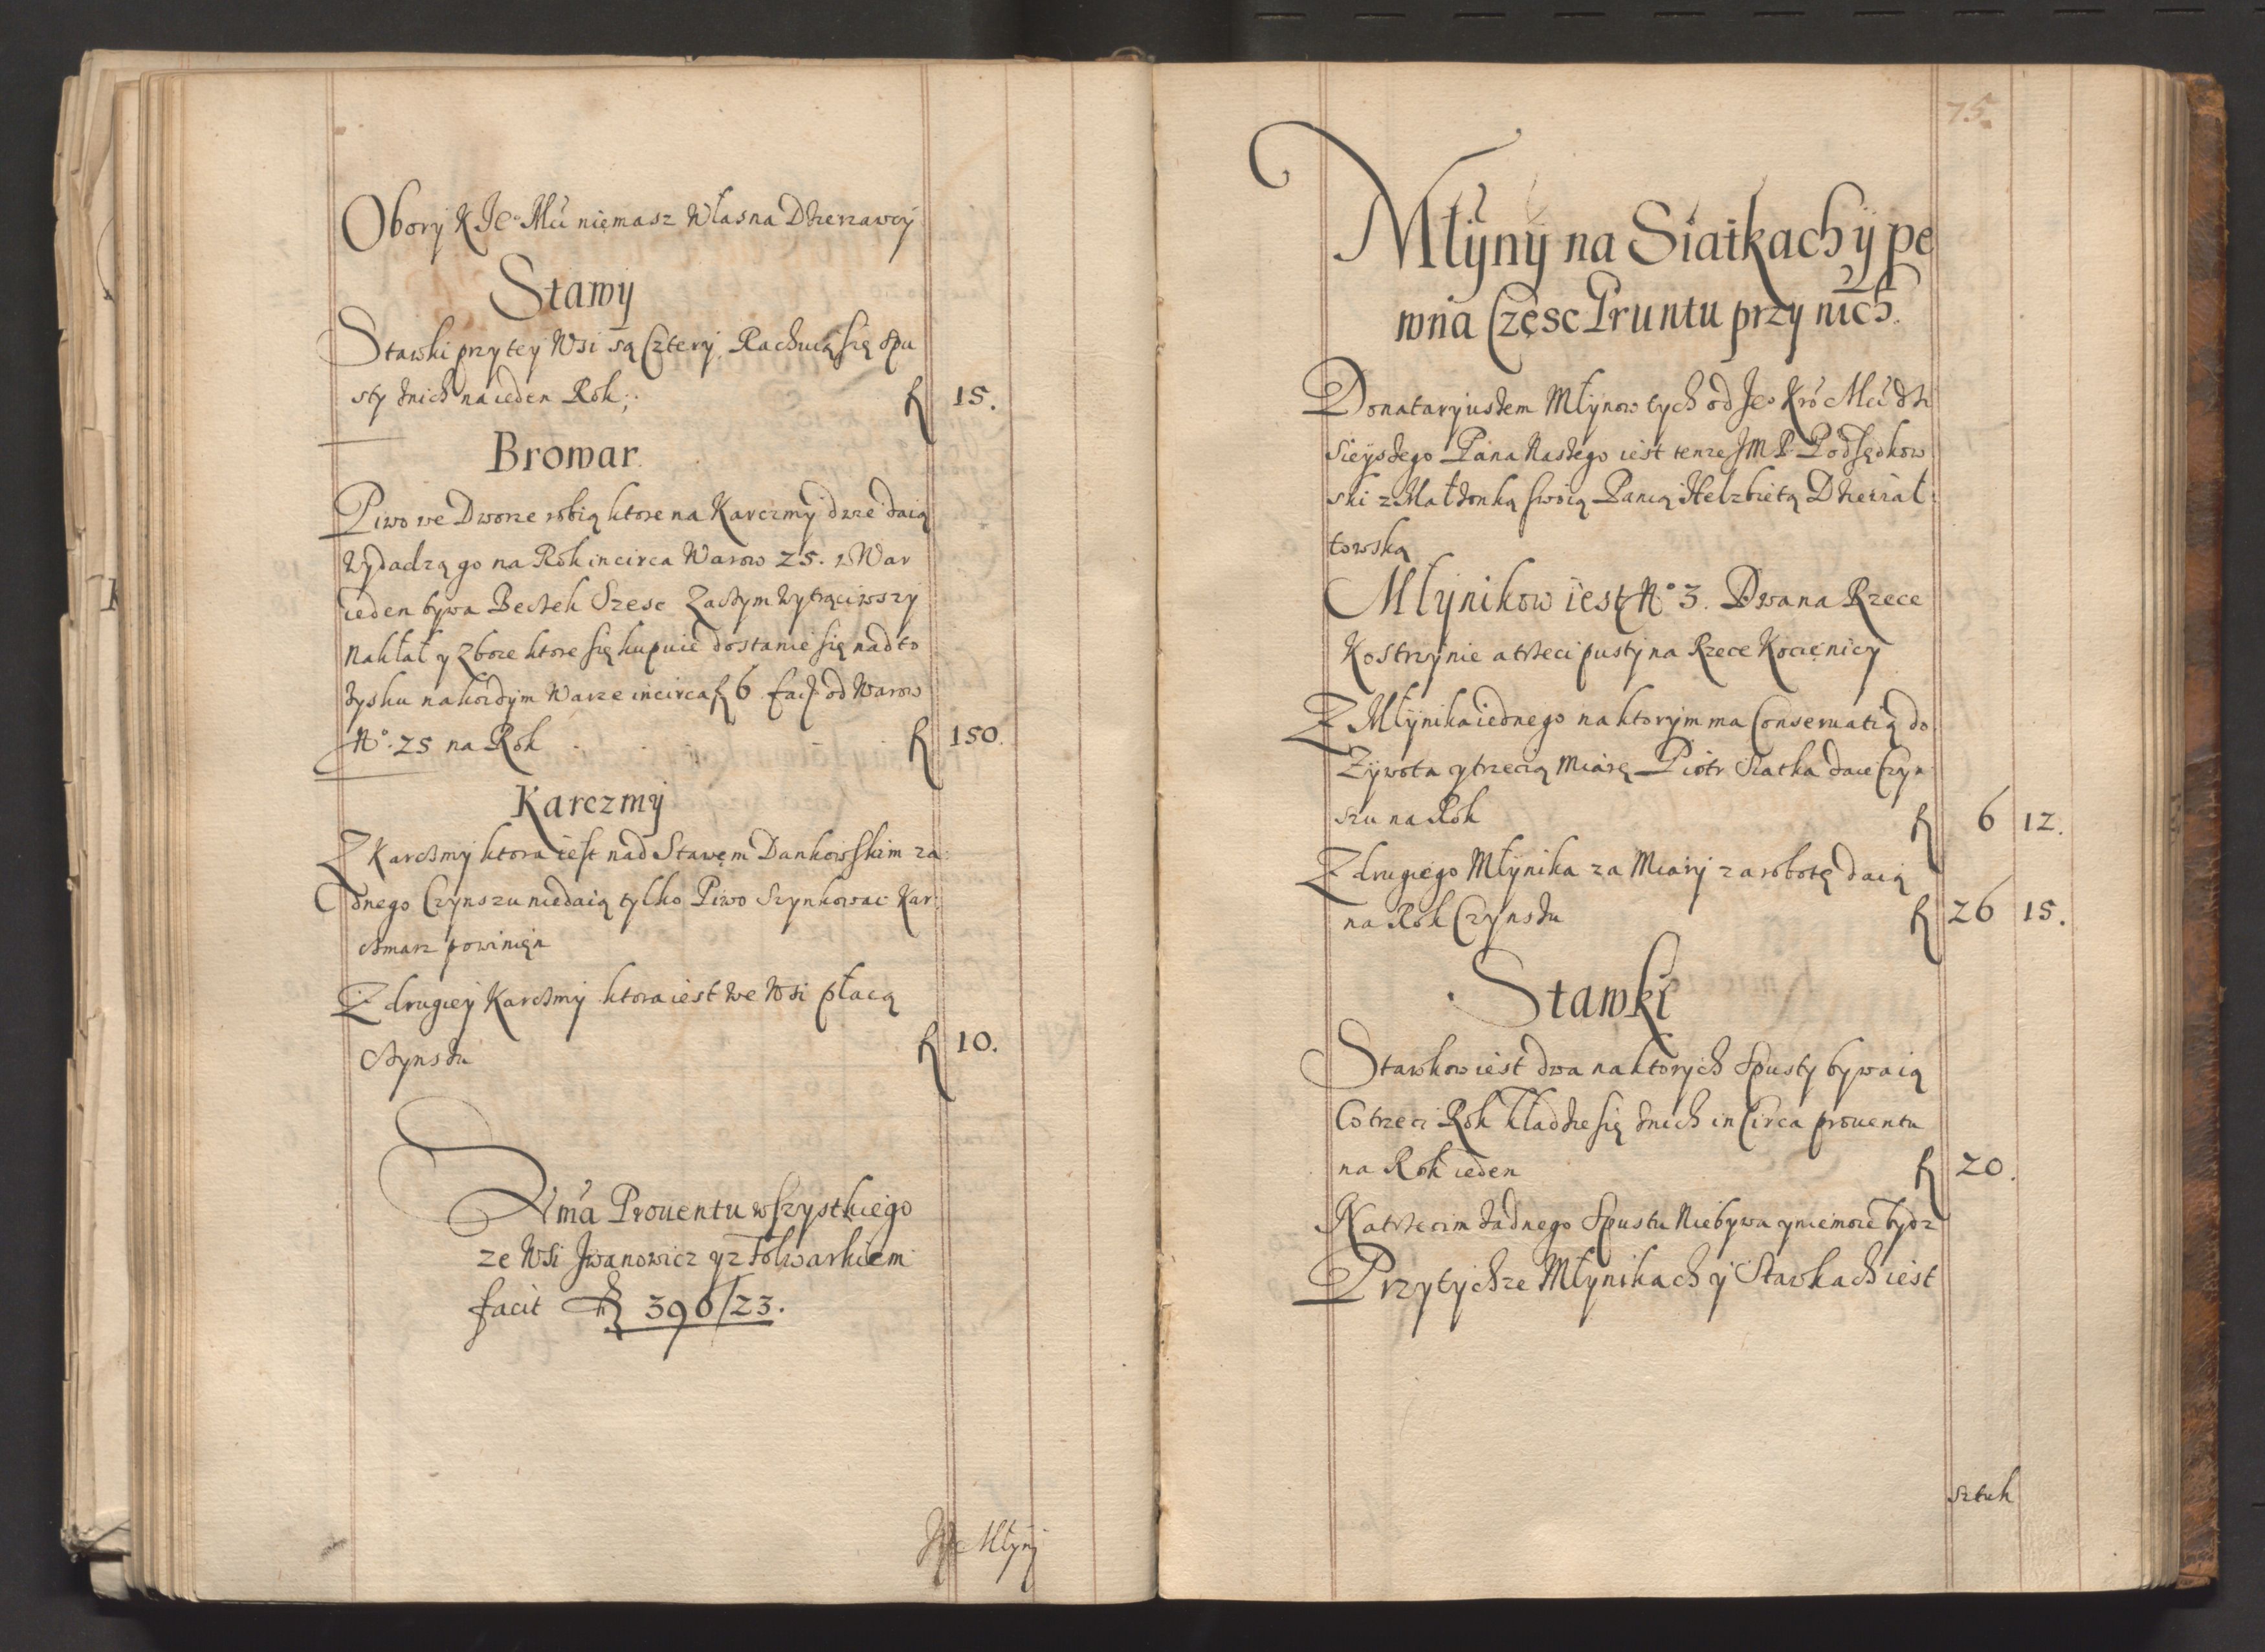 Obory K Je° Mu niemasz Własna Dzierzawcy
Stawy
Stawki przy tey Wsi są Cztery, Rachuią się Spu
sty znich na ieden Rok; f 15.
Browar
Piwo we Dworze robią ktore na Karczmy dwie daią
Wydadzą go na Rok in circa Warow 25. w War
ieden bywa Beczek Szesc Zaczym Wytrąciwszy
Nakład y Zboze ktore się kupuie dostanie się nad to
zysku na kozdym Warze in circa f 6 facit od Warow
N°. 25 na Rok f 150.
Karczmy
Z Karczmy ktora iest nad Stawem Dankowskim za
dnego Czynszu niedaią tylko Piwo Szynkowac Kar
czmarz powinięn
Z drugiey Karczmy ktora iest we Wsi płacą
Czynszu f 10.
Suma Prouentu wszystkiego
ze Wsi Jwanowicz y z Folwarkiem
facit f 396/23.
Młyny
75.
Młyny na Siatkach y pe
wna Częsc Gruntu przy nich.
Donataryuszem Młynow tych od Je° Kró Mci dzi
sieyszego Pana Naszego iest tenze JMP. Podsędkow
ski z Małzonką swoią Panią Helzbietą Dzierzał
towską
Młynikow iest N° 3. Dwa na Rzece
Kostrzynie a trzeci pusty na Rzece Kocięnicy
Z Młynika iednego na ktorym ma Conseruatią do
Zywota y trzecią Miarę Piotr Siatka daie Czyn
szu na Rok f 6 12.
Z drugiego Młynika za Miary za robotę daią
na Rok Czynszu f 26 15.
Stawki
Stawkow iest dwa na ktorych Spusty bywaią
Co trzeci Rok kładzie się znich in Circa prouentu
na Rok ieden f 20.
Na trzecim zadnego Spustu Niebywa y niemoze bydz
Przy tychze Młynikach y Stawkach iest
sztuk